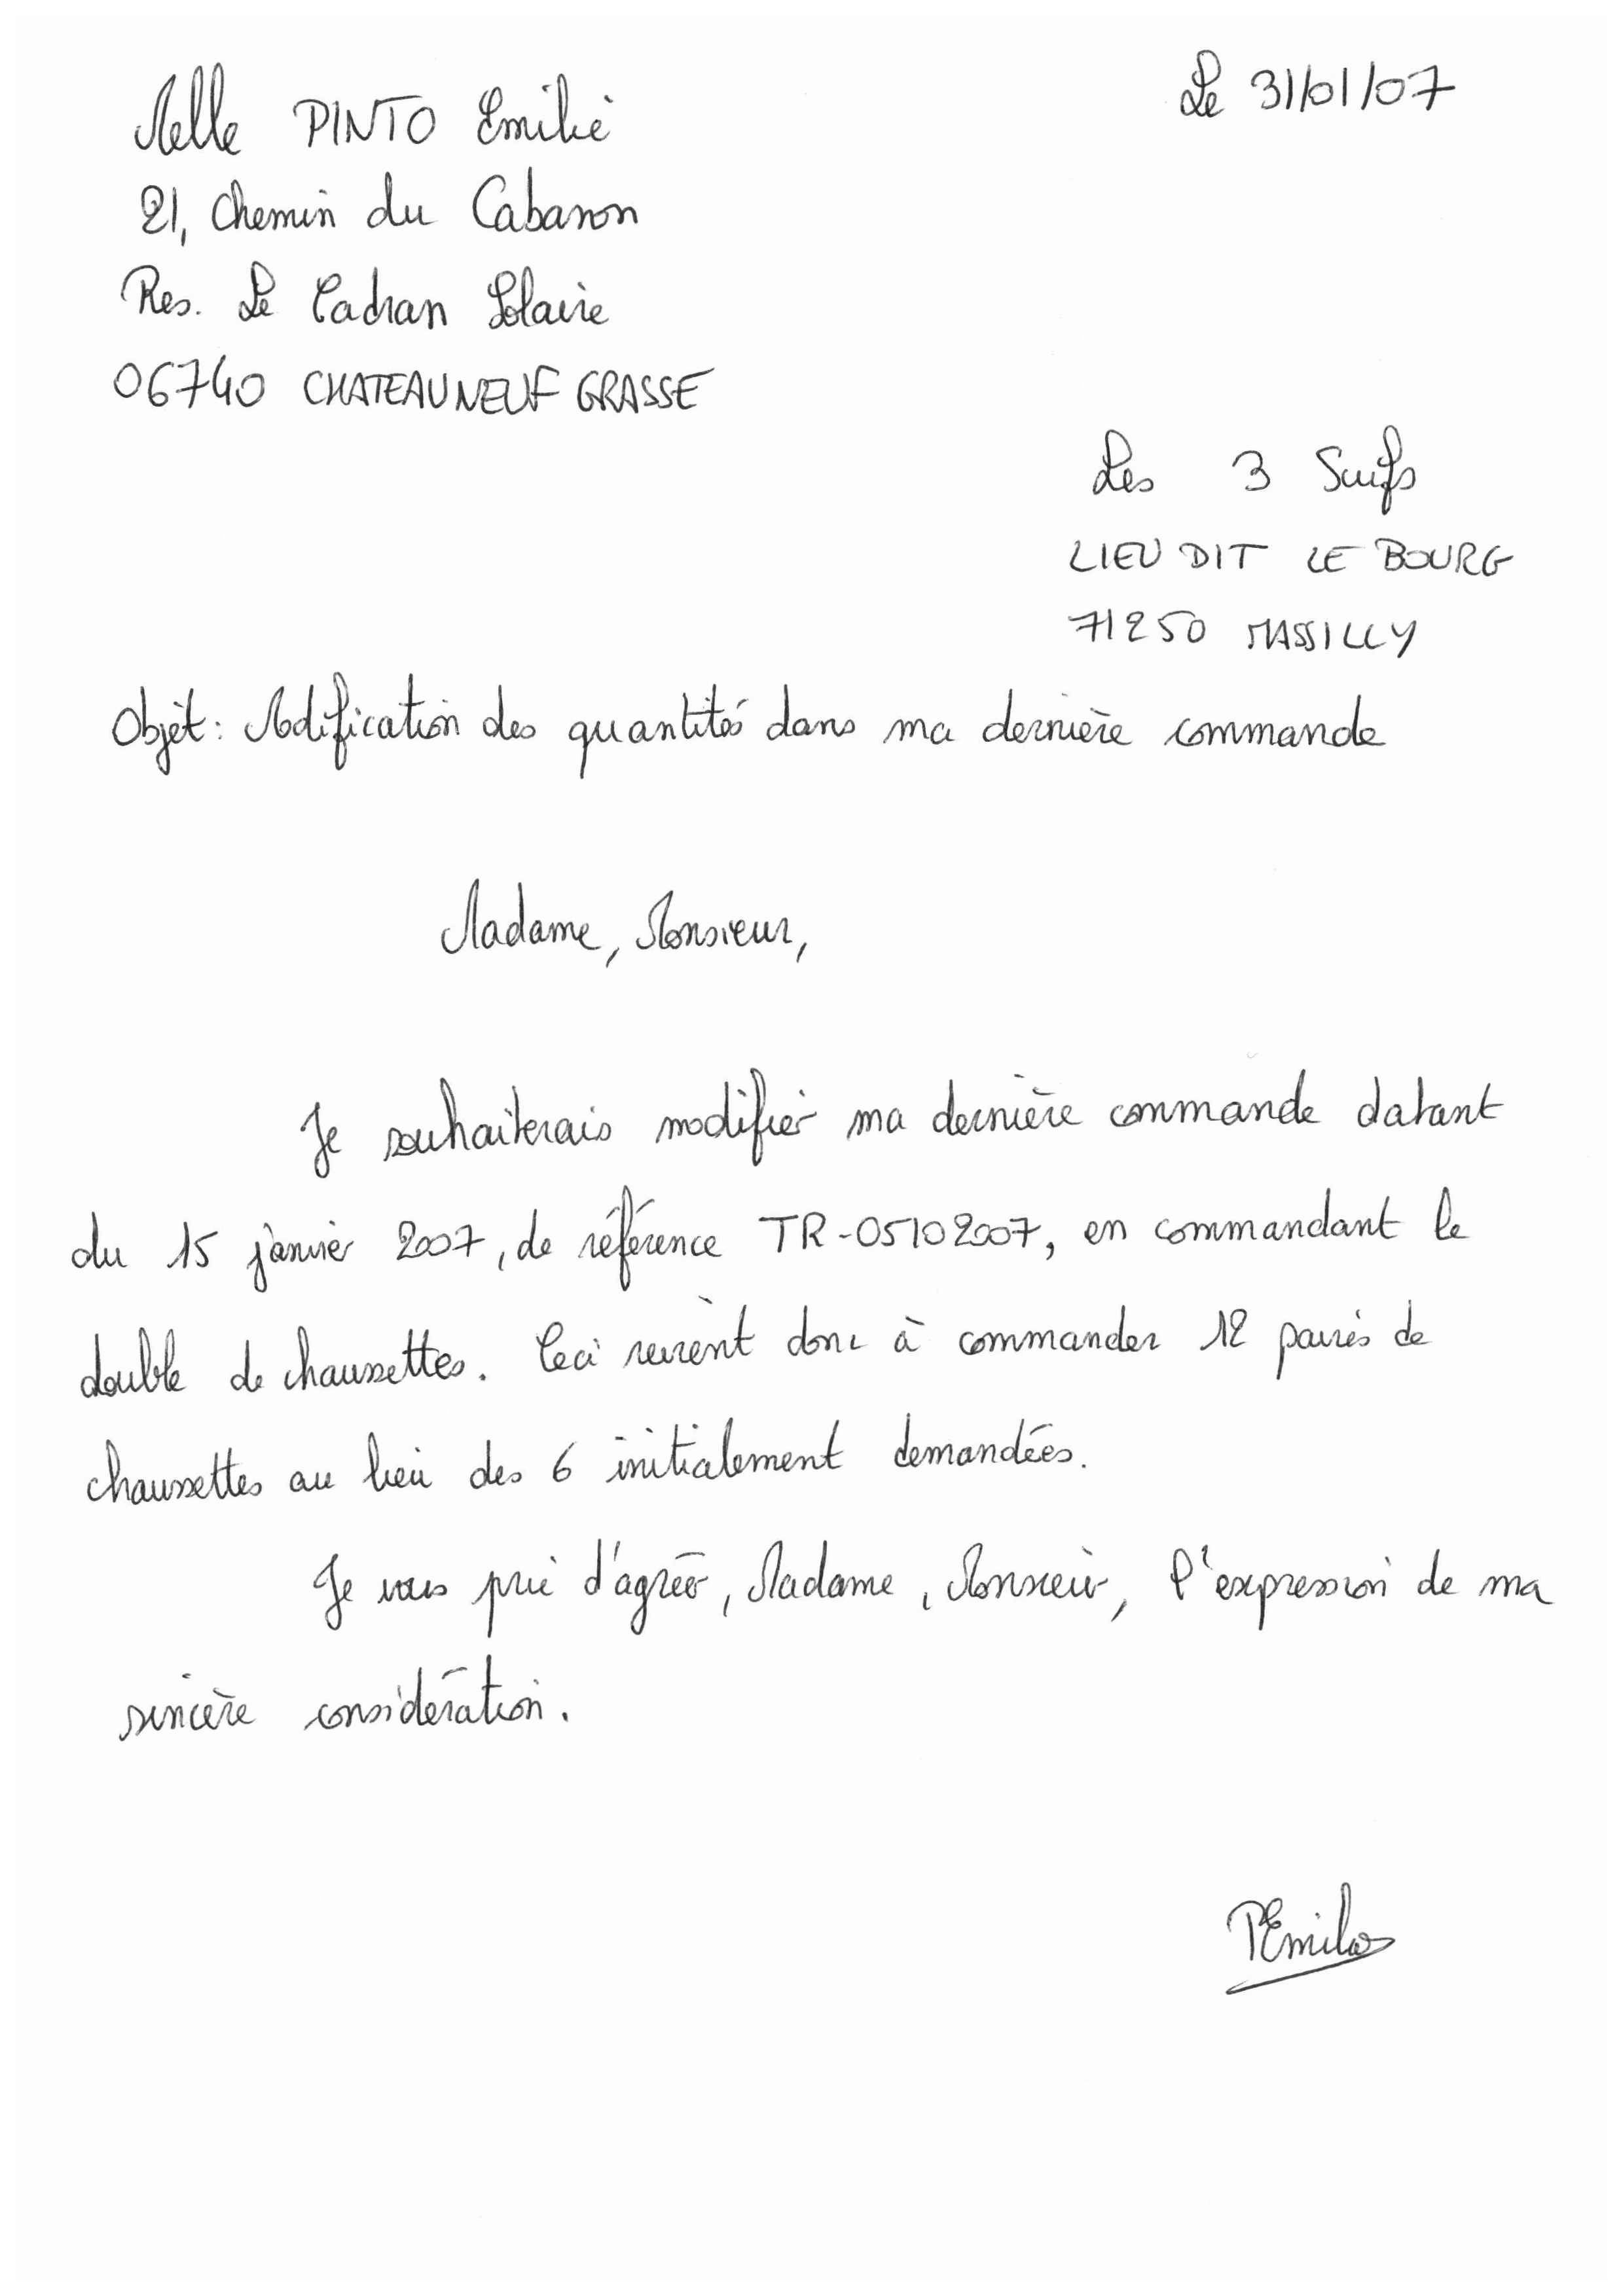 Melle PINTO Emilie
Le 31/01/07
21, Chemin du Cabanon
Res. Le Cadran Solaire
06740 CHATEAUNEUF GRASSE
Les 3 Suifs
LIEU DIT LE BOURG
71250 MASSILLY
Objet : Modification des quantités dans ma dernière commande
Madame, Monsieur,
Je souhaiterais modifier ma dernière commande datant
du 15 janvier 2007, de référence TR-05102007, en commandant le
double de chaussettes. Ceci revient donc à commander 12 paires de
chaussettes au lieu des 6 initialement demandées.
Je vous prie d'agréer, Madame, Monsieur, l'expression de ma
sincère considération.
PEmilie